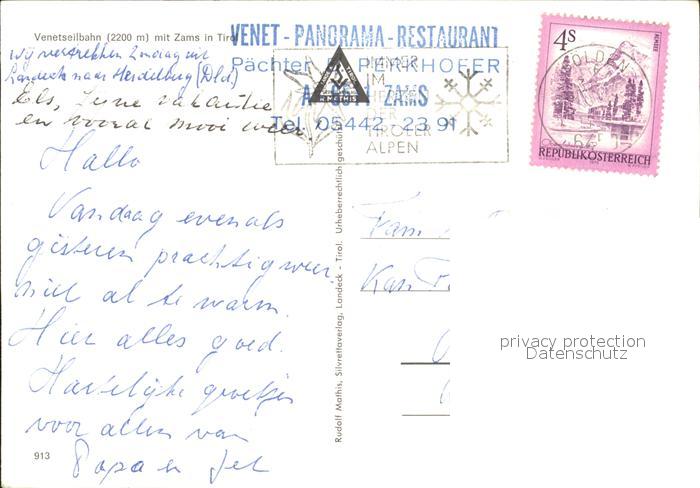 Venetseilbahn (2200 m) mit Zams in Tirol
VENET - PANORAMA - RESTAURANT
Pächter PERKHOFER
ZAMS
Tel. 05442 - 23 91
IMMER
IM
DER
TIROLER
ALPEN
4S
SÖLDEN
REPUBLIK ÖSTERREICH
wij vertrekken Zondag uit
Landeck naar Heidelburg (Dld)
Els, fijne vakantie
en vooral mooi weer.
Hallo
Vandaag evenals
gisteren prachtig weer.
niet al te warm.
Hier alles goed.
Hartelijke groetjes
voor allen van
Papa en Jel
913
Rudolf Mathis, Silvrettaverlag, Landeck - Tirol. Urheberrechtlich geschützt
Fam
privacy protection
Datenschutz